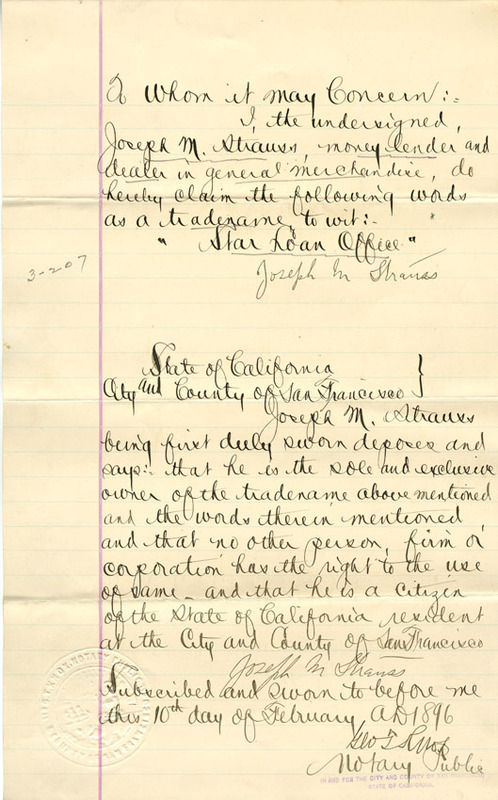 To Whom it may Concern:-
I, the undersigned,
Joseph M. Strauss, money lender and
dealer in general merchandise, do
hereby claim the following words
as a tradename, to wit:-
"Star Loan Office"
Joseph M Strauss
3-207
State of California
City and County of San Francisco }
Joseph M. Strauss
being first duly sworn deposes and
says: that he is the sole and exclusive
owner of the tradename above mentioned
and the words therein mentioned,
and that no other person, firm or
corporation has the right to the use
of same - and that he is a citizen
of the State of California resident
at the City and County of San Francisco
Joseph M Strauss
Subscribed and sworn to before me
this 10th day of February, AD 1896
Notary Public
IN AND FOR THE CITY AND COUNTY OF SAN FRANCISCO
STATE OF CALIFORNIA.